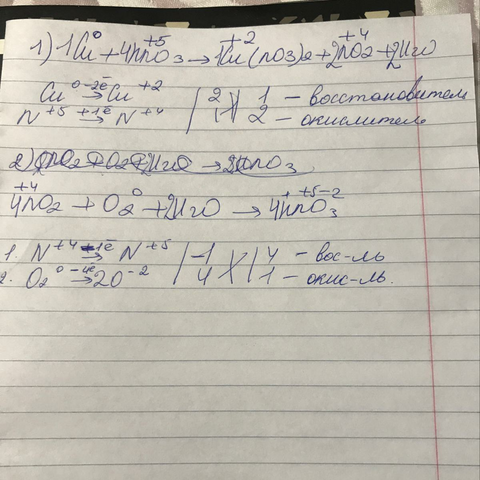 1) 1Cu⁰ + 4HNO₃⁺⁵ → 1Cu⁺²(NO₃)₂ + 2NO₂⁺⁴ + 2H₂O
Cu⁰ -2e̅ → Cu⁺² | 2 | 1 – восстановитель
N⁺⁵ +1e̅ → N⁺⁴ | 1 | 2 – окислитель
2)
4NO₂⁺⁴ + O₂⁰ + 2H₂O → 4HNO₃⁺⁵⁻²
1. N⁺⁴ -1e̅ → N⁺⁵ | -1 | 4 – вос-ль
2. O₂⁰ -4e → 2O⁻² | 4 | 1 – окис-ль.